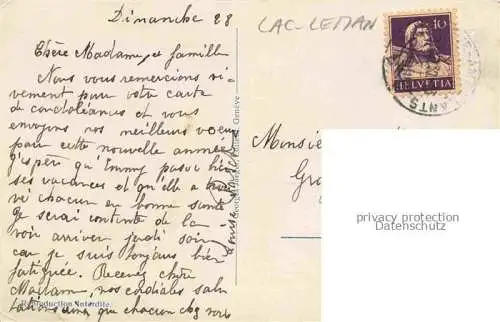 Dimanche 28
Chère Madame, et famille
Nous vous remercions vi-
vement pour votre carte
de condoléances et vous
envoyons nos meilleurs voeux
pour cette nouvelle année
J'espère qu'Emmy passe bien
ses vacances et qu'elle a trou-
vé chacun en bonne santé
Je serai contente de la
voir arriver jeudi soir
car je suis toujours bien
fatiguée. Recevez chère
Madame, nos cordiales salu-
tations ainsi que chacun chez vous
Louise
Genève
Reproduction Interdite.
LAC-LEMAN
10
HELVETIA
ANTS
Monsie
Gra
privacy protection
Datenschutz